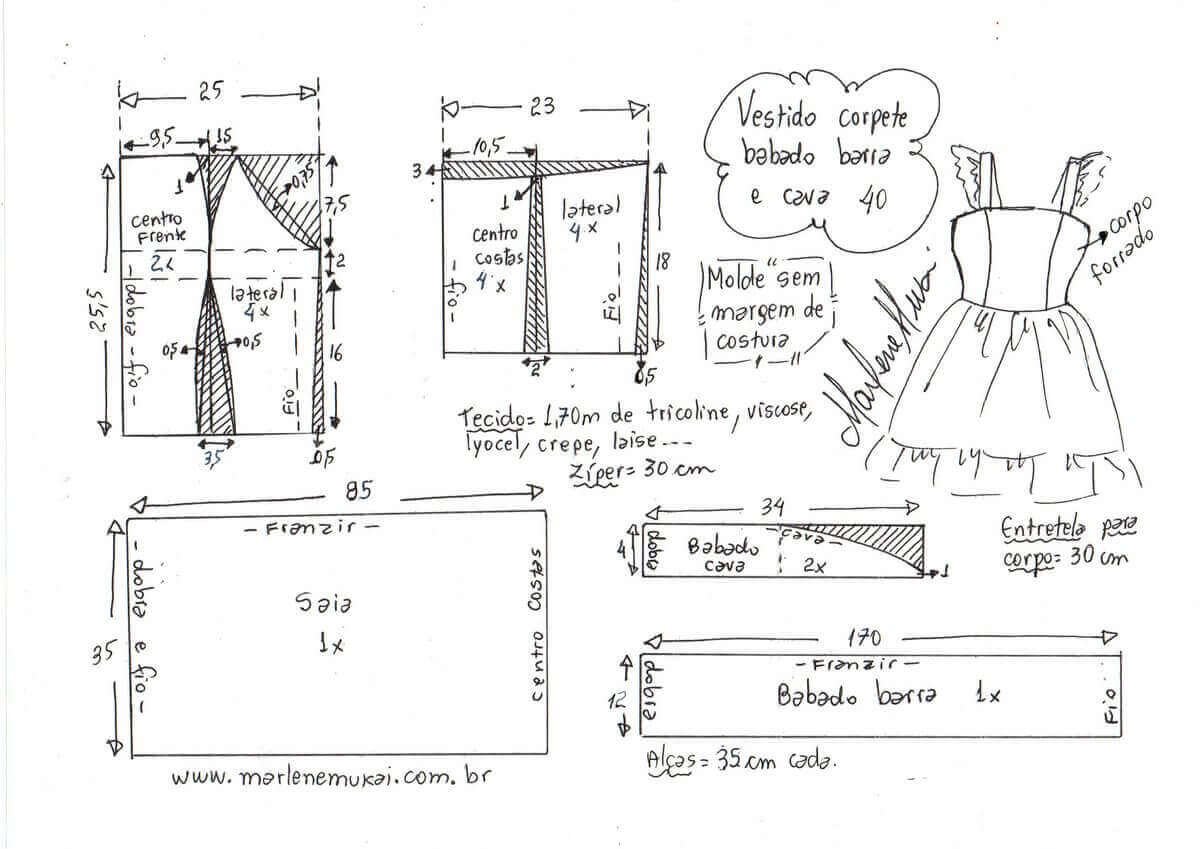 25
9,5
15
1
0,75
7,5
2
centro
Frente
2x
25,5
dobra - fio -
lateral
4x
0,5
0,5
Fio
16
3,5
0,5
23
10,5
3
1
centro
costas
4x
lateral
4x
- Fio -
Fio
18
2
0,5
Vestido corpete
babado barra
e cava 40
"Molde sem
margem de
costura"
corpo
forrado
Marlene Mukai
Tecido = 1,70m de tricoline, viscose,
lyocel, crepe, laise ---
Zíper = 30 cm
85
- Franzir -
35
- dobra e fio -
Saia
1x
centro costas
www.marlenemukai.com.br
34
4
dobra
Babado
cava
- cava -
2x
1
Entretela para
corpo = 30 cm
170
- Franzir -
12
dobra
Babado barra 1x
Fio
Alças = 35 cm cada.